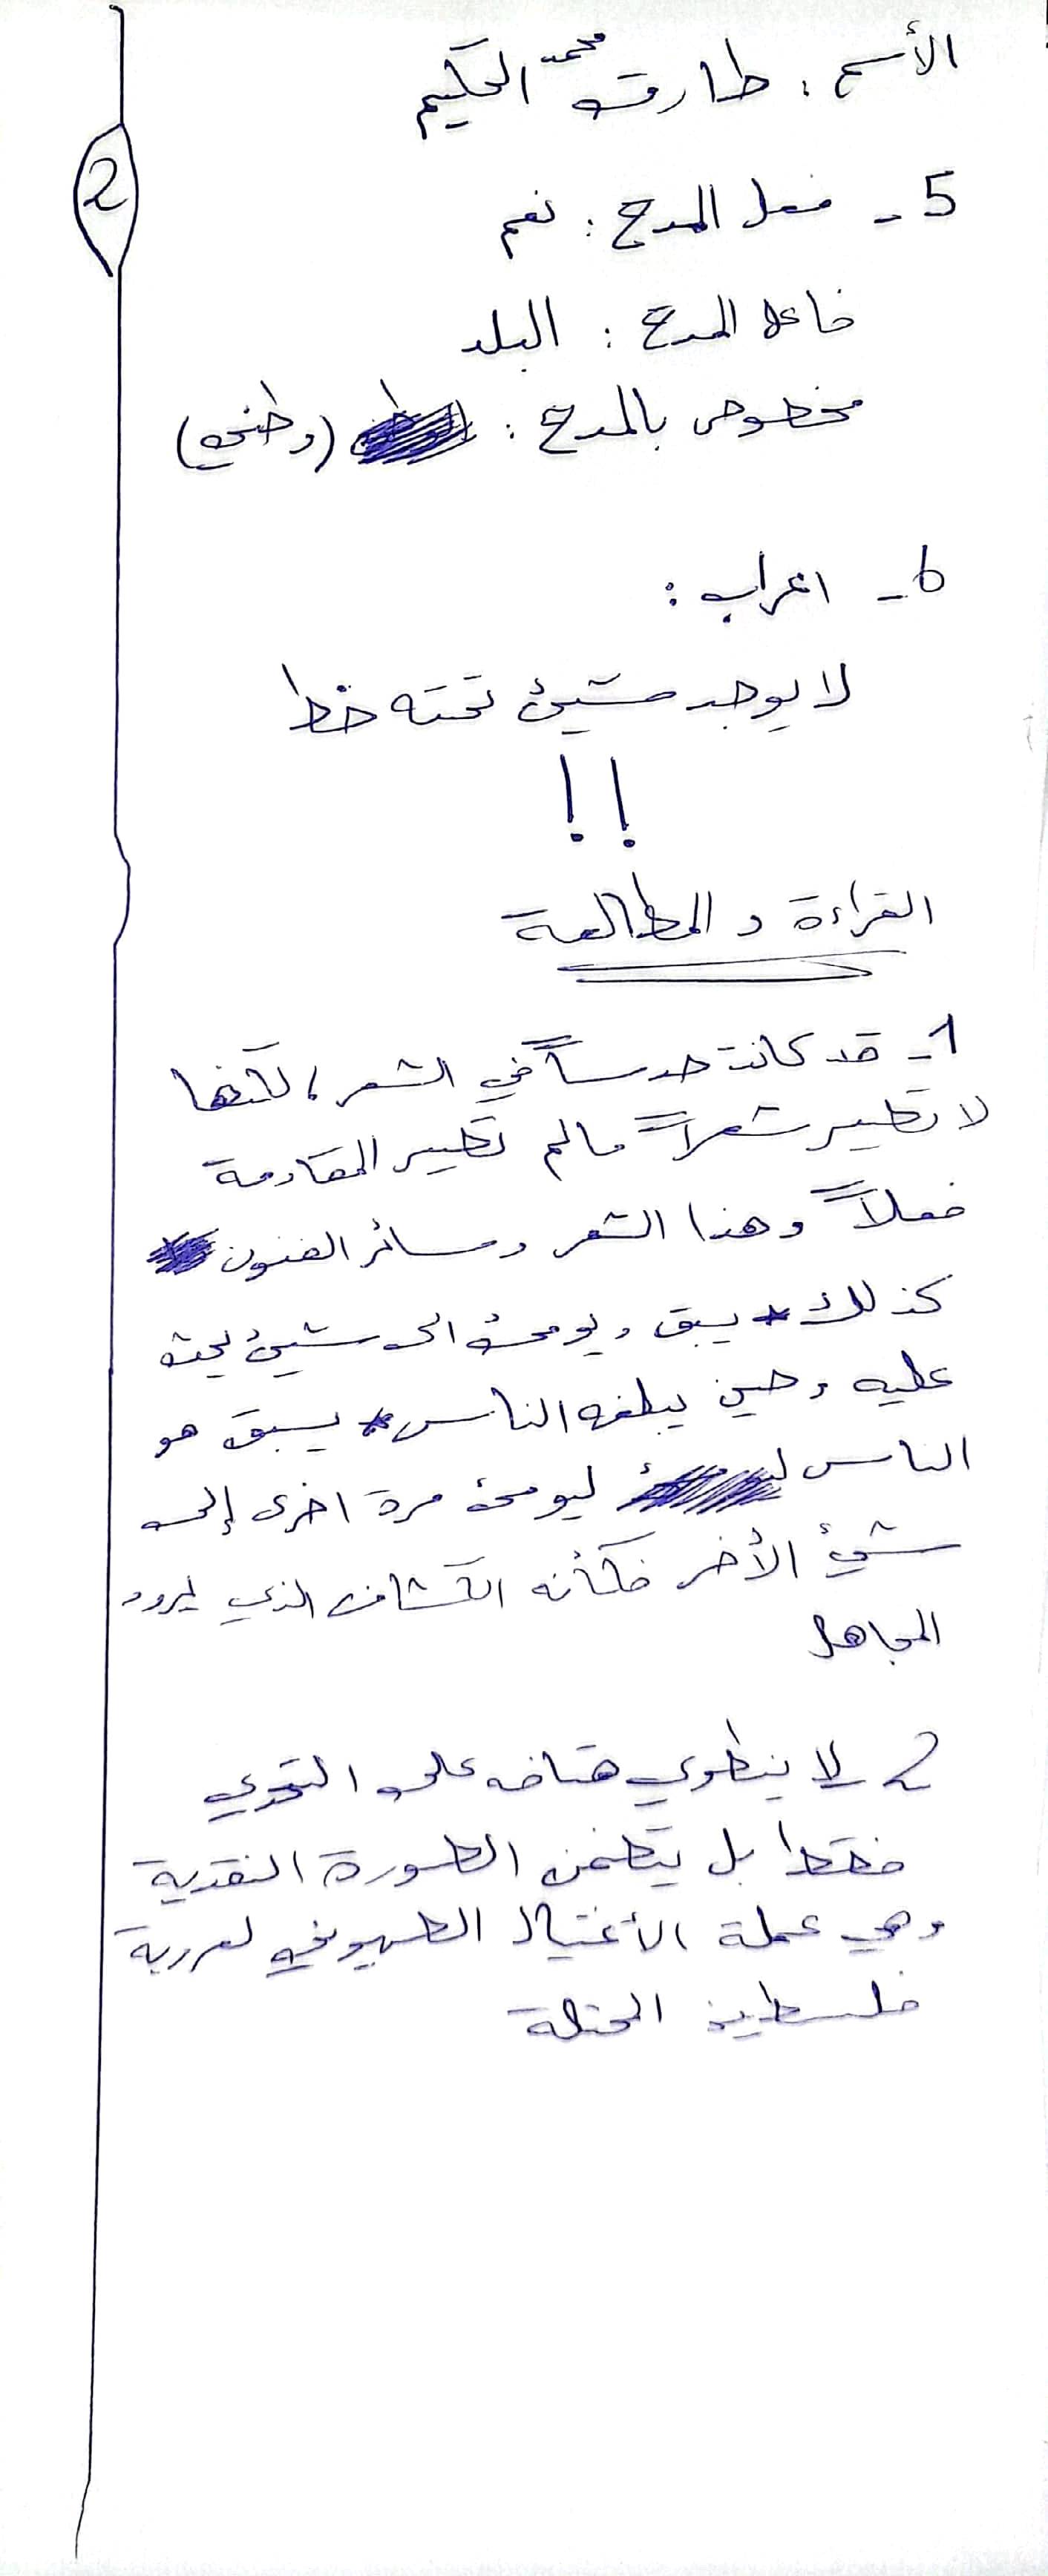 الأسم : طارق محمد الحكيم
2
5 - فعل المدح : نعم
فاعل المدح : البلد
مخصوص بالمدح : (وطني)
6 - اعراب :
لا يوجد شيئ تحته خط
!!
القراءة و المطالعة
1 - قد كانت حدساً في الشعر ، لكنها
لا تصير شعراً مالم تصير المقاومة
فعلاً وهذا الشعر وسائر الفنون
كذلك يسبق ويومئ الى شيئ يحث
عليه وحين يبلغه الناس يسبق هو
الناس ليومئ مرة اخرى إلى
شيئ الأخر فكأنه الكشاف الذي يرود
المجاهل
2 لا ينطوي هتافه على التحدي
فقط بل يتضمن الصورة النقدية
وهي عملة الأغتيال الصهيوني لعروبة
فلسطين المحتلة